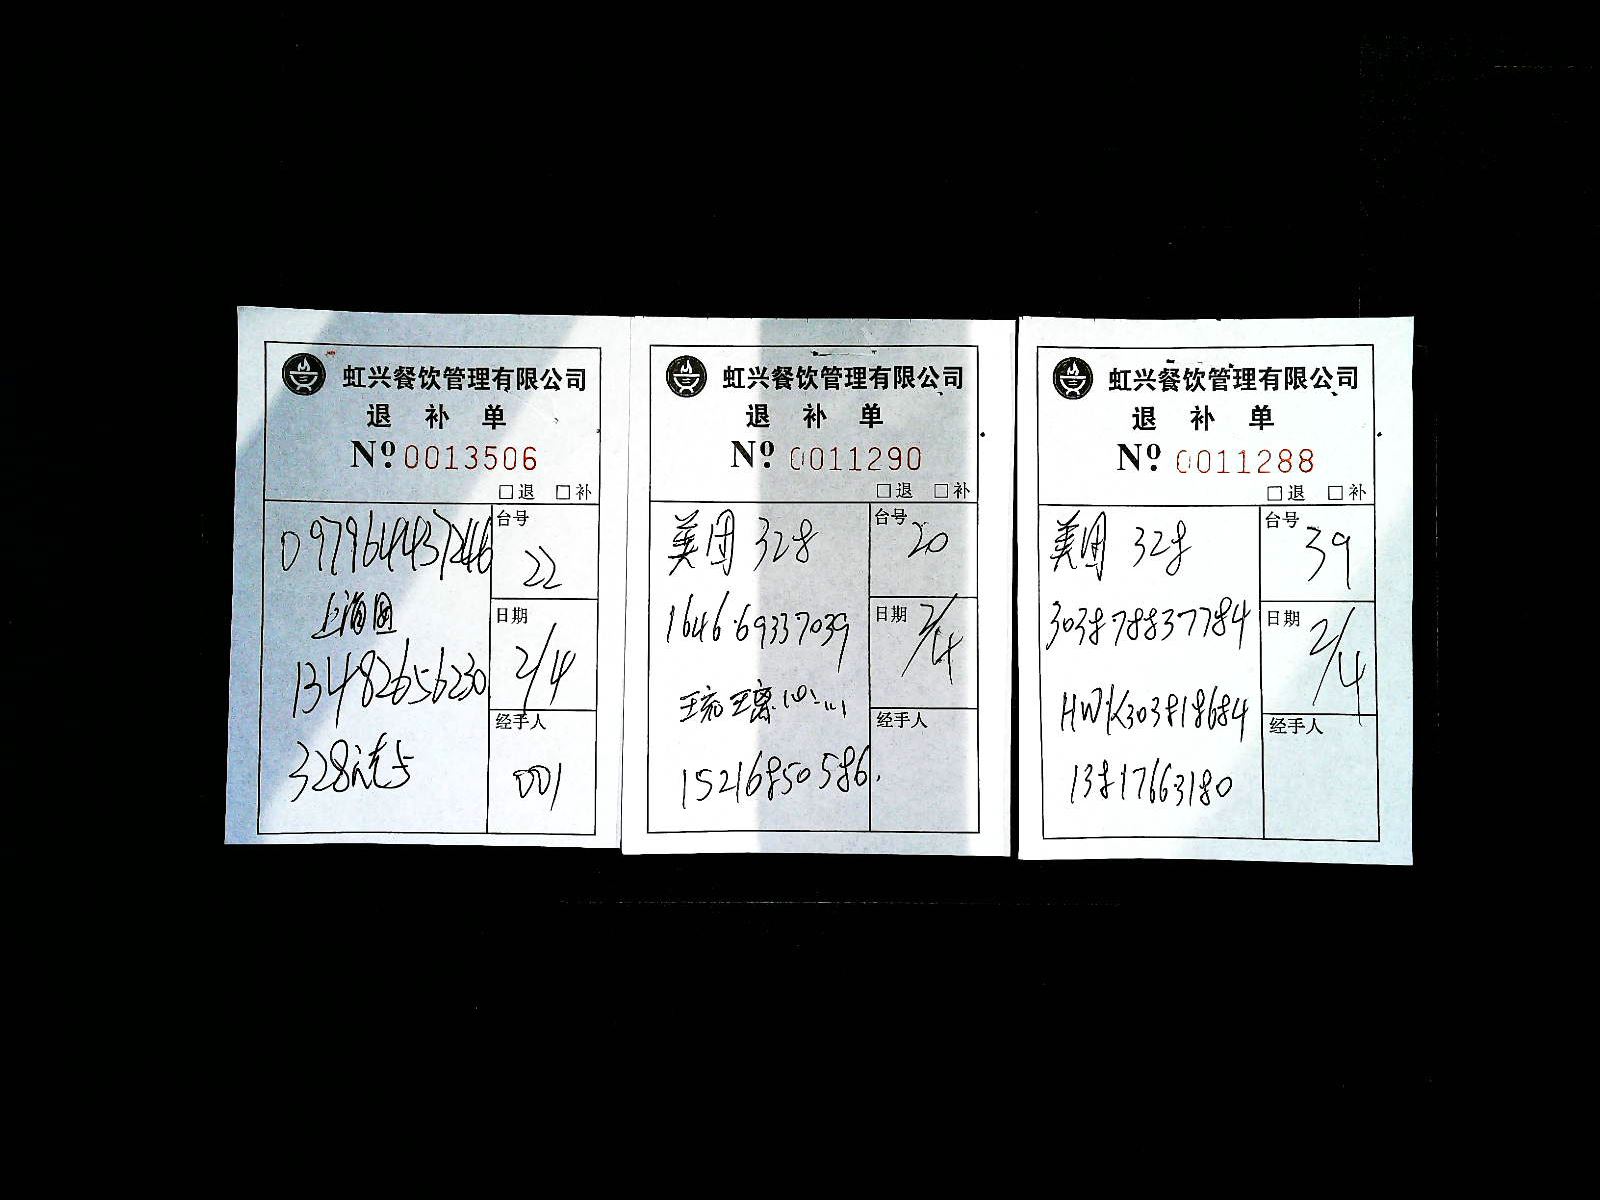 虹兴餐饮管理有限公司
退 补 单
Nº 0013506
□退 □补
097964437246
上海团
13482656230
328
台号
22
日期
2/4
经手人
001
虹兴餐饮管理有限公司
退 补 单
Nº 0011290
□退 □补
美团 328
1646 69337039
琉璃心
15216850586.
台号
20
日期
2/4
经手人
虹兴餐饮管理有限公司
退 补 单
Nº 0011288
□退 □补
美团 328
303878837784
HWK303818684
13817663180
台号
39
日期
2/4
经手人